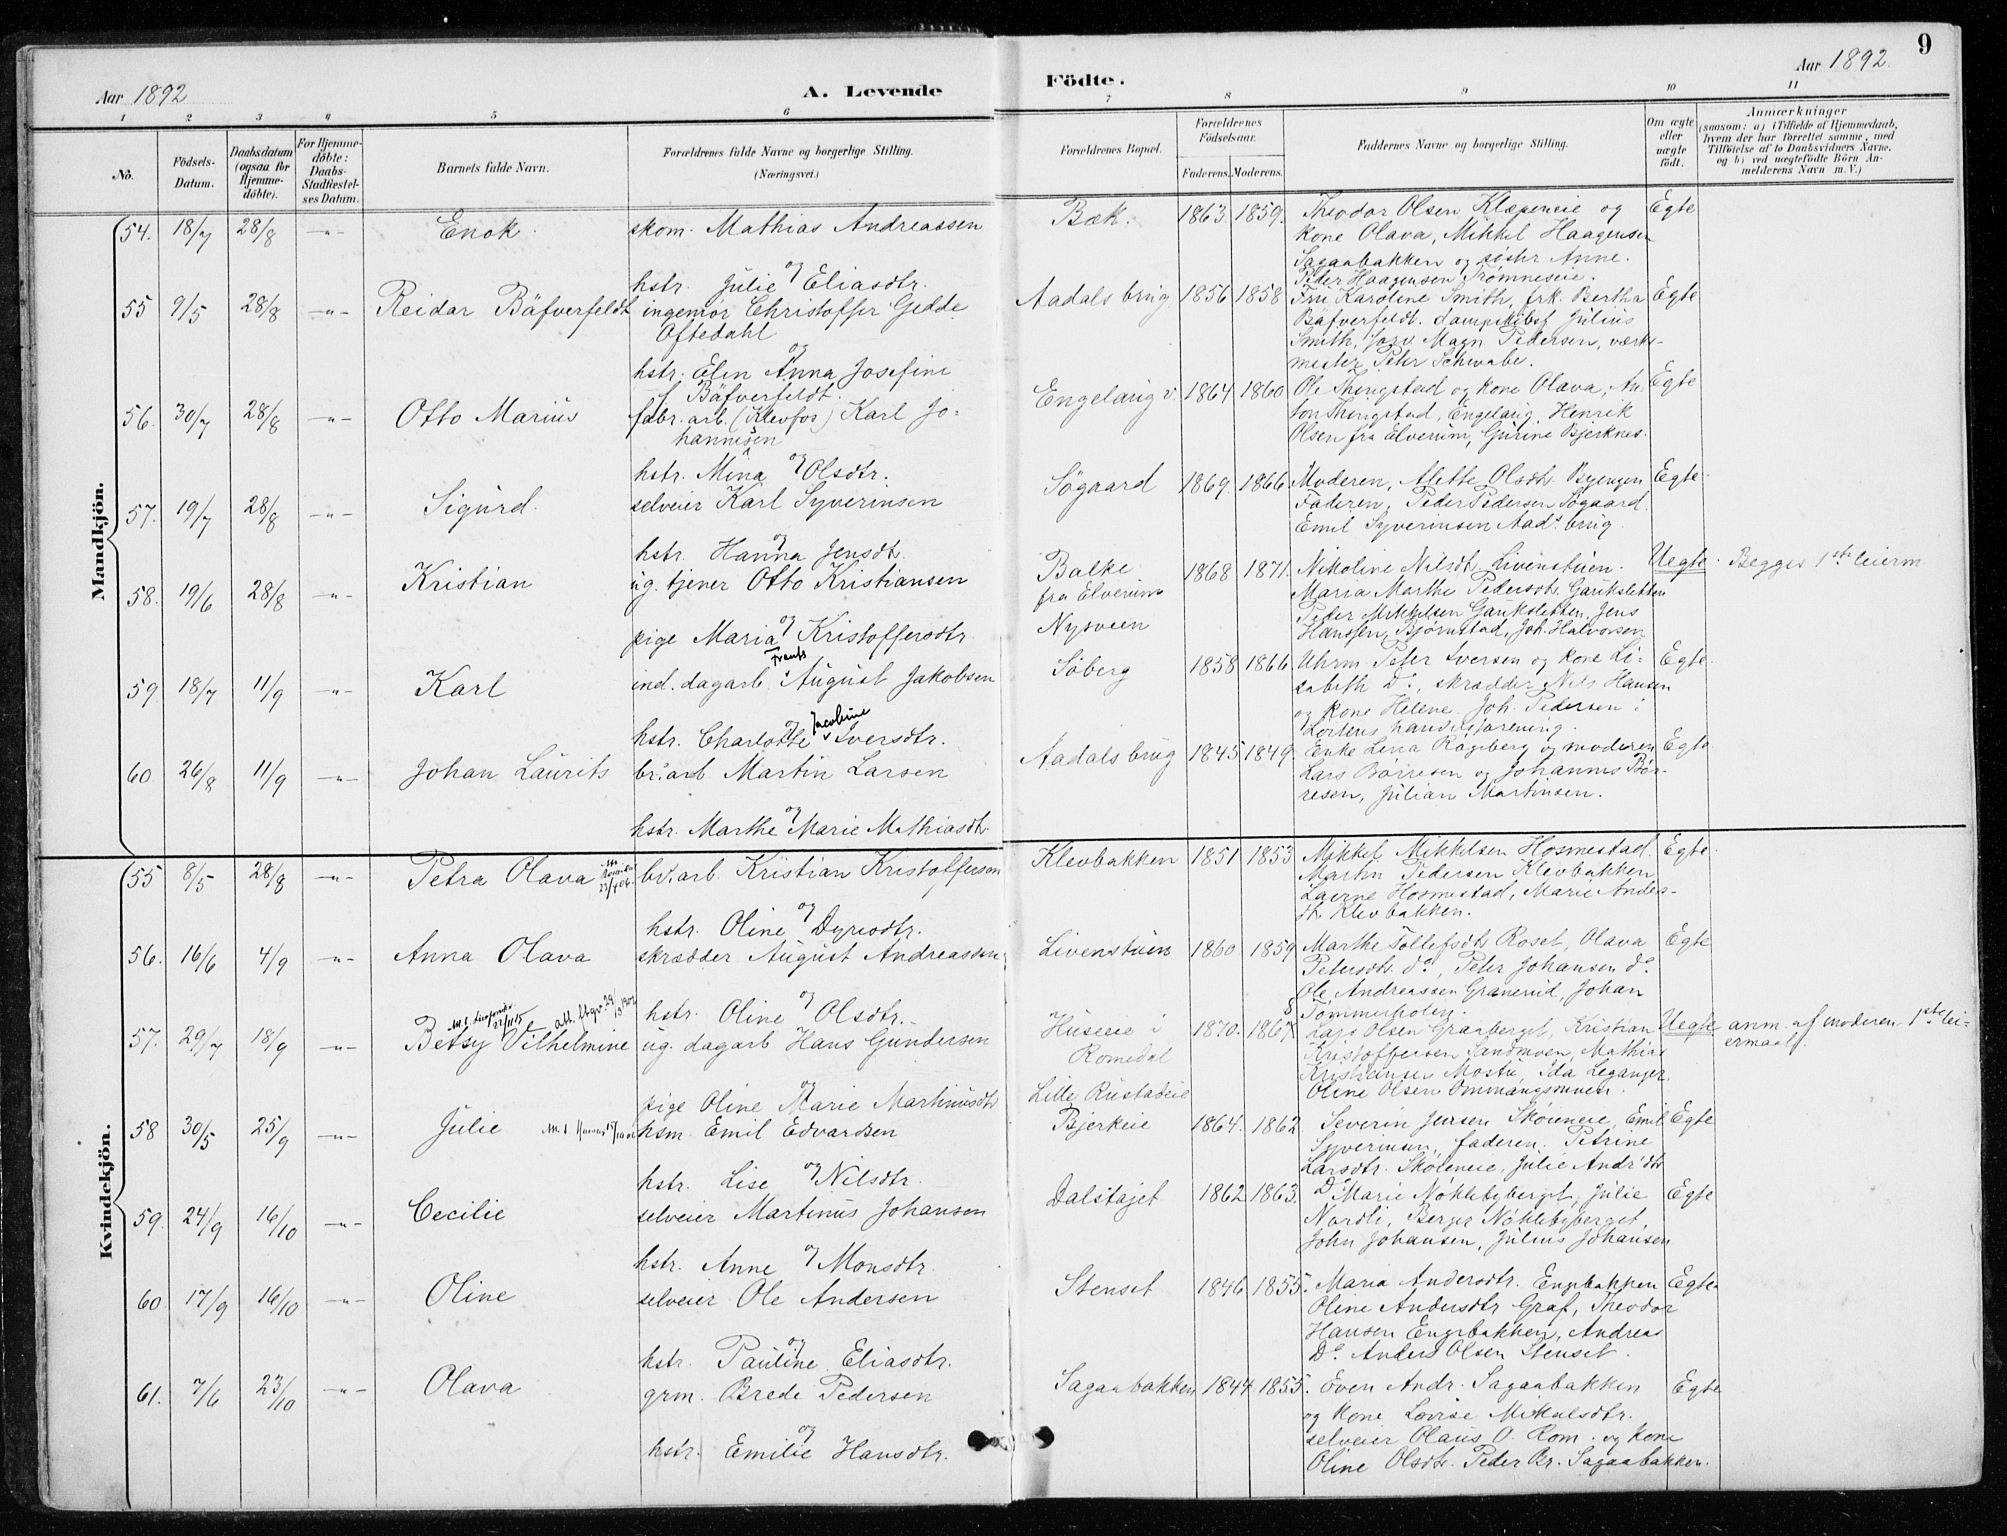 9
Aar 1892
A. Levende
Födte.
Aar 1892
1 2 3 4 5 6 7 8 9 10 11
No.
Födsels-Datum.
Daabsdatum (ogsaa for Hjemmedöbte).
For Hjemmedöbte: Daabs-Stadfæstelses Datum.
Barnets fulde Navn.
Forældrenes fulde Navne og borgerlige Stilling.
(Næringsvei.)
Forældrenes Bopæl.
Forældrenes Födselsaar.
Faderens. Moderens.
Faddernes Navne og borgerlige Stilling.
Om ægte eller uægte født.
Anmærkninger
(saasom: a) i Tilfælde af Hjemmedaab, hvem der har forrettet samme, med Tilföielse af to Daabsvidners Navne. og b) ved uægtefödte Börn Anmelderens Navn m. V.)
Mandkjön.
54. 18/7 28/8 -"- Enok. skom. Mathias Andreassen
og
hstr. Julie Eliasdtr.
Bæk. 1863 1859. Theodor Olsen Klæpeneie og Egte
kone Olava, Mikkel Haagensen
Sagaabakken og søster Anne.
Peder Haagensen Trømneseie.
55 9/5 28/8 -"- Reidar Bäfverfeldt ingeniør Christoffer Gedde
Oftedahl
og
hstr. Elen Anna Josefine
f. Bäfverfeldt.
Aadals brug 1856 1858 Fru Karoline Smith, frk. Bertha Egte
Bäfverfeldt. Julius
Smith, Magn. Pedersen, værks-
mester Peter Schwabe.
56. 30/7 28/8 -"- Otto Marius fabr. arb. (Klevfos) Karl Jo-
hannesen
og
hstr. Mina Olsdtr.
Engelaug v. 1864 1860 Ole Thingstad og kone Olava, An- Egte
ton Thingstad, Engelaug, Henrik
Olsen fra Elverum, Gurine Bjerknes.
57. 19/7 28/8 -"- Sigurd. selveier Karl Syverinsen
og
hstr. Hanna Jensdtr.
Søgaard 1869 1866 Moderen, Alette Olsdtr. Byengen Egte.
Faderen, Peder Pedersen Søgaard.
Emil Syverinsen Aads brug.
58. 19/6 28/8 -"- Kristian ug. tjener Otto Kristiansen
og
pige Maria Kristoffersdtr
Balke
fra Elverum
Nysveen
1868 1871. Nikoline Nilsdtr. Livenstuen. Uegte. Begges 1ste leierm
Maria Marthe Pedersdtr. Gauksletten
Peder Mikkelsen Gauksletten, Jens
Hansen Bjørnstad, Joh. Halvorsen
59 18/7 11/9 -"- Karl ind. dagarb. Frants August Jakobsen
og
hstr. Charlotte Jacobine Iversdtr.
Søberg 1858 1866. Uhrm. Peter Iversen og kone Li- Egte.
sabeth Do, skrædder Nils Hansen
og kone Helene. Joh. Pedersen i
Løtens handelsforening.
60 26/8 11/9 -"- Johan Laurits br. arb Martin Larsen
og
hstr. Marthe Marie Mathiasdtr
Aadals brug 1845 1849. Enke Lina Rogsberg og moderen Egte
Lars Børresen og Johannes Bør-
resen, Julian Martinsen.
Kvindekjön.
55 8/5 28/8 -"- Petra Olava br. arb. Kristian Kristoffersen
og
hstr. Oline Dyresdtr.
Klevbakken 1851 1853 Mikkel Mikkelsen Hosmestad. Egte.
Martin Pedersen Klevbakken
Hosmestad, Marie Anders-
dtr. Klevbakken.
56. 16/6 4/9 -"- Anna Olava skrædder August Andreassen
og
hstr. Oline Olsdtr.
Livenstuen 1860 1859 Marthe Tollefsdtr Roset, Olava Egte
Petersdtr. Do, Peter Johansen Do.
Ole Andreassen Granerud, Johan
Tømmerholen.
57. 29/7 18/9 -"- Betsy Vilhelmine ug. dagarb Hans Gundersen
og
pige Oline Marie Martinusdtr
Huseie i
Romedal
Lille Rustadeie
1870. 1867 Lars Olsen Graaberget, Kristian Uegte anm. af moderen. 1ste lei-
ermaal.
Kristoffersen Sandmoen, Mathias
Kristiansen Mostue, Ida Leganger
Oline Olsen Ommangsmoen.
58 30/5 25/9 -"- Julie hsm. Emil Edvardsen
og
hstr. Lise Nilsdtr.
Bjerkeie 1864. 1862 Severin Jensen Skøieneie, Emil Egte
Syverinsen, faderen. Petrine
Larsdtr. Skøieneie, Julie Andr'dtr
Do
59. 24/9 16/10 -"- Cecilie selveier Martinus Johansen
og
hstr. Anne Monsdtr.
Dalstøjet 1862 1863. Marie Nøklebyberget, Julie Egte
Nordli, Berger Nøklebyberget,
John Johansen, Julius Johansen
60 17/9 16/10 -"- Oline selveier Ole Andersen
og
hstr. Pauline Eliasdtr.
Stenset 1846 1855. Maria Andersdtr. Engebakken Egte
Oline Andersdtr Graf, Theodor
Hansen Engebakken, Andreas
Do. Anders Olsen Stenset.
61. 7/6 23/10 -"- Olava grm. Brede Pedersen
og
hstr. Emilie Hansdtr.
Sagaabakken 1844 1855. Even Andr. Sagaabakken Egte
og kone Lovise Mikalsdtr.
selveier Olaus O. Rom. og kone
Oline Olsdtr. Peder Br. Sagaabakken.